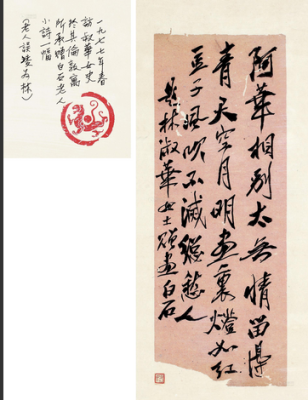 阿華相別太無情留得
青天空月明畫裏燈如紅
豆子風吹不滅總愁人
林淑華女士畫白石
一九七七年春
訪叔華女史
於其倫敦寓
所承贈白石老人
小詩一幅
（老人誤凌為林）